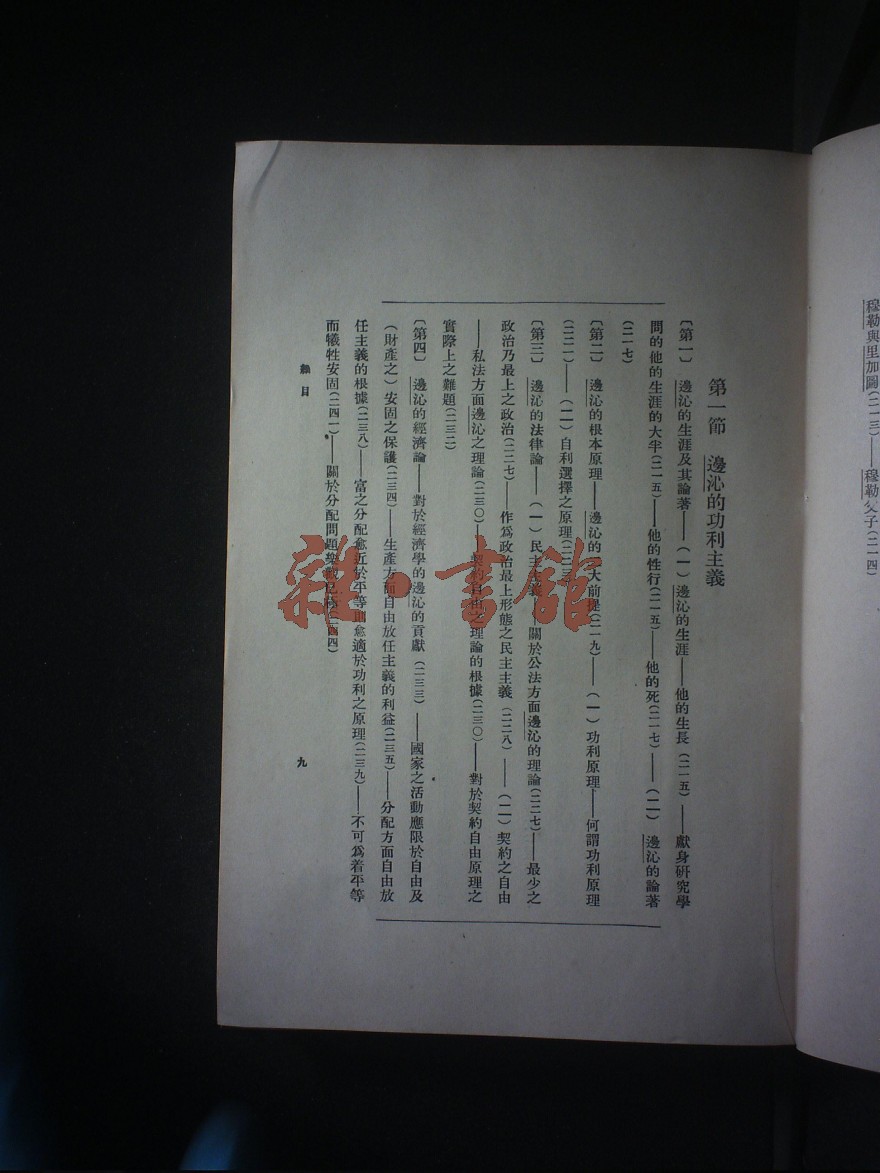 穆勒與里加圖(二一三)——穆勒父子(二一四)
第一節　邊沁的功利主義
〔第一〕　邊沁的生涯及其論著——(一)邊沁的生涯——他的生長(二一五)——獻身研究學
問的他的生涯的大半(二一五)——他的性行(二一五)——他的死(二一七)——(二)邊沁的論著
(二一七)
〔第二〕　邊沁的根本原理——邊沁的二大前提(二一九)——(一)功利原理——何謂功利原理
(二二一)——(二)自利選擇之原理(二二三)
〔第三〕　邊沁的法律論——(一)民主主義——關於公法方面邊沁的理論(二二七)——最少之
政治乃最上之政治(二二七)——作爲政治最上形態之民主主義(二二八)——(二)契約之自由
——私法方面邊沁之理論(二三〇)——契約自由之理論的根據(二三〇)——對於契約自由原理之
實際上之難題(二三二)
〔第四〕　邊沁的經濟論——對於經濟學的邊沁的貢獻(二三三)——國家之活動應限於自由及
(財產之)安固之保護(二三四)——生產方面自由放任主義的利益(二三五)——分配方面自由放
任主義的根據(二三八)——富之分配愈近於平等則愈適於功利之原理(二三九)——不可爲着平等
而犧牲安固(二四一)——關於分配問題樂觀已極(二四四)
總目
九
雜·書館